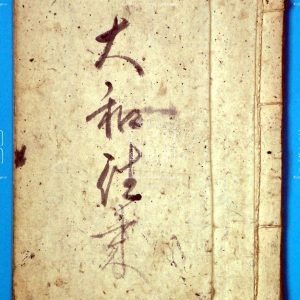 大和往来